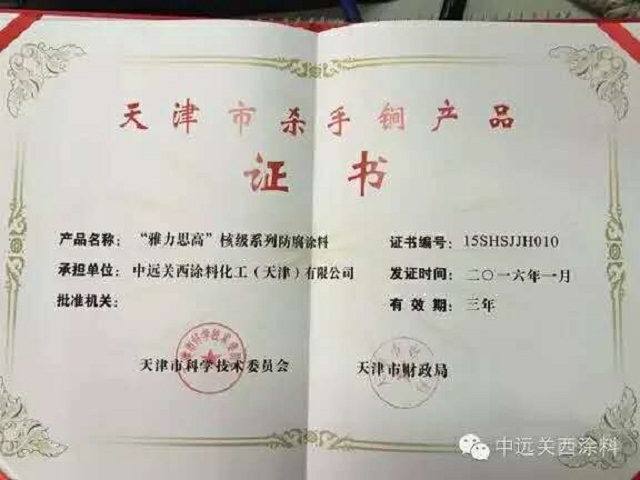 天津市杀手锏产品
证书
产品名称：“雅力思高”核级系列防腐涂料
承担单位：中远关西涂料化工（天津）有限公司
批准机关：
天津市科学技术委员会
证书编号：15SHSJJH010
发证时间：二〇一六年一月
有效期：三年
天津市财政局
中远关西涂料